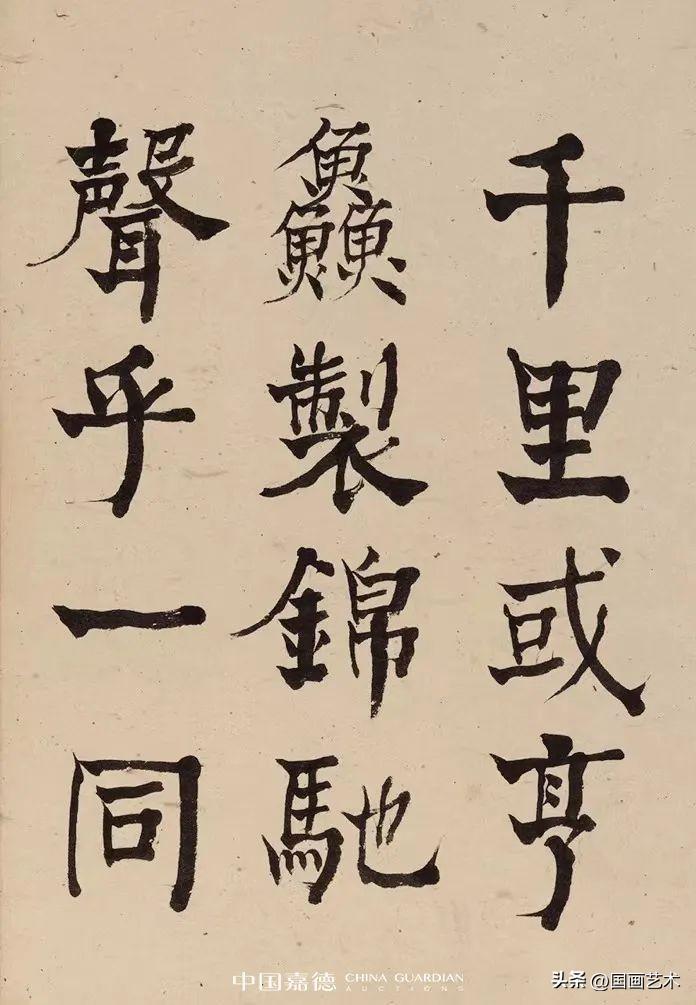 千里或亨
鱻製錦馳
聲乎一同
中国嘉德 CHINA GUARDIAN
AUCTIONS
头条 @国画艺术